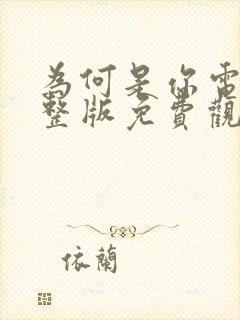 為何是你電
整版免費觀
依蘭